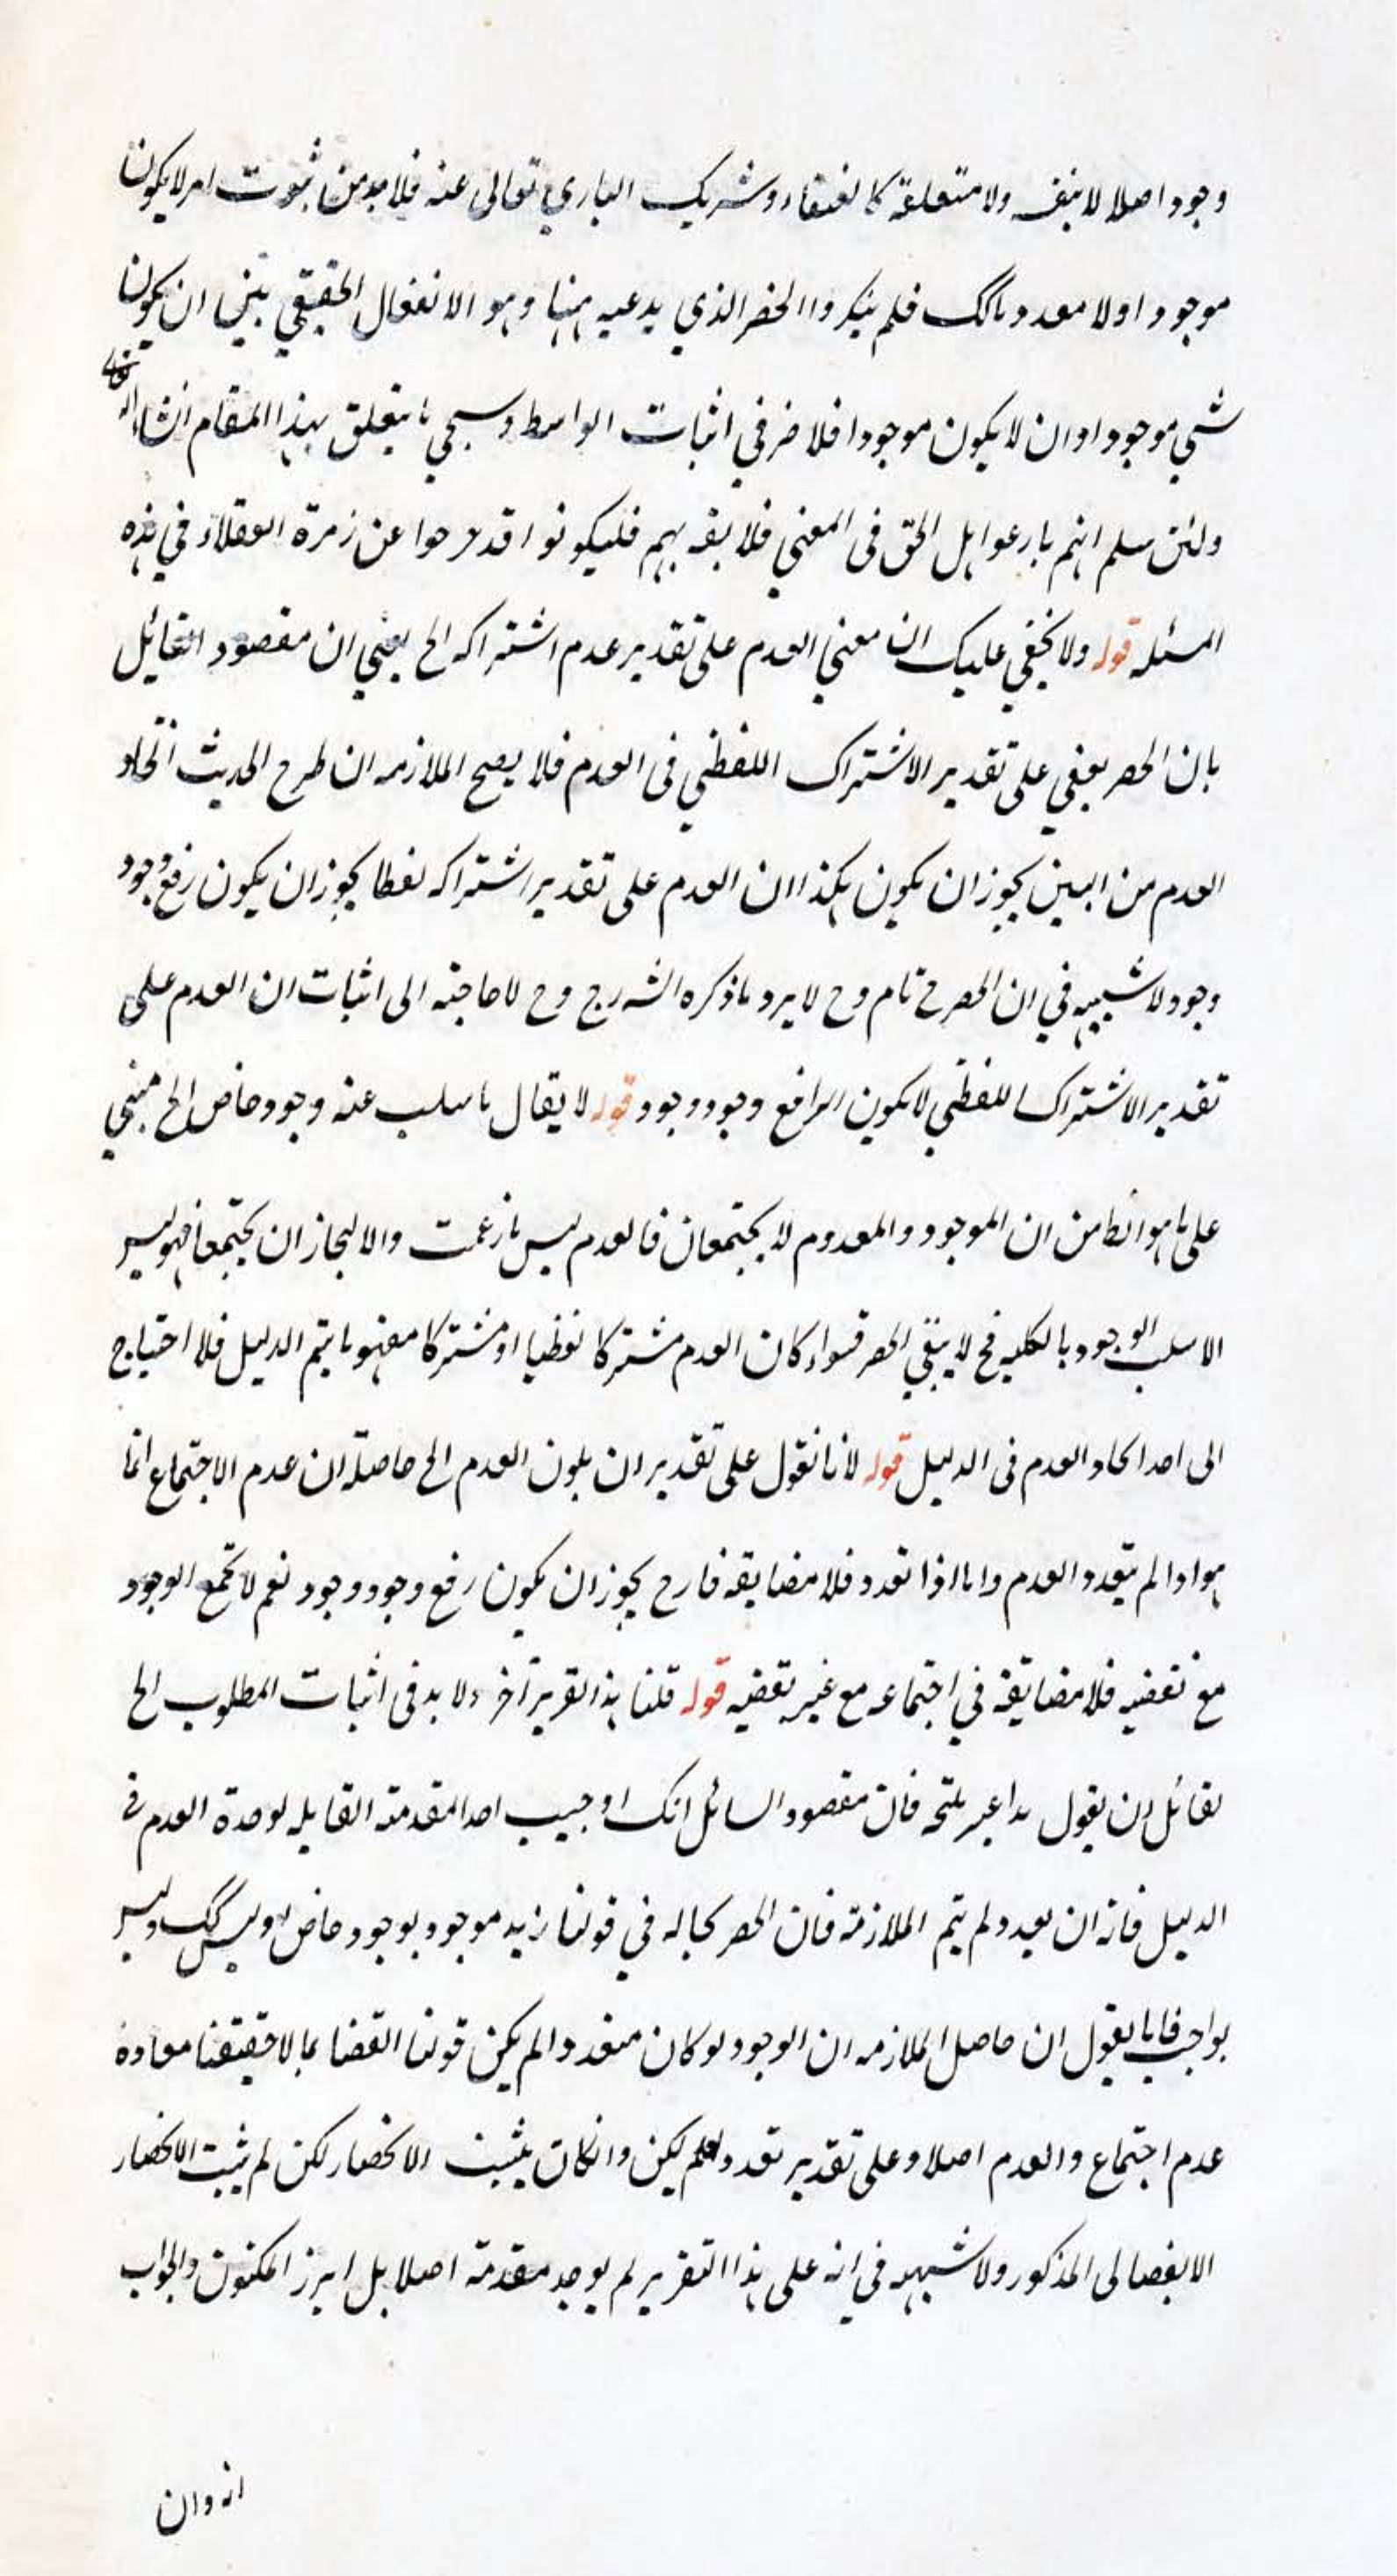 وجود اصلا لا بنفسه ولا متعلقة كالعنقاء وشريك الباري تعالى عنه فلا بد من ثبوت امر لا يكون
موجودا ولا معدوما كك فلم ينكروا الحصر الذي يدعيه ههنا وهو الانفصال الحقيقي بين ان يكون
شي موجودا وان لا يكون موجودا فلا ضر في اثبات الواسط وسيجي ما يتعلق بهذا المقام انشاء الله تعالى
ولئن سلم انهم نازعوا اهل الحق فى المعني فلا بهم فليكونوا قد خرجوا عن زمرة العقلاء في هذه
المسئله قوله ولا يخفي عليك ان معني العدم على تقدير عدم اشتراكه الخ يعني ان مقصود القائل
بان الحصر على تقدير الاشتراك اللفظي فى العدم فلا يصح الملازمه ان طرح الحديث اتحاد
العدم من البين يجوز ان يكون هكذا ان العدم على تقدير اشتراكه لفظا يجوز ان يكون رفع وجود
وجود ولا شبهه في ان الحصر ح تام وح لا يرد ما ذكره الشارح وح لا حاجته الى اثبات ان العدم على
تقدير الاشتراك اللفظي لا يكون الرافع وجود وجود قوله لا يقال ما سلب عنه وجود خاص الخ مبني
على ما هو الظا من ان الموجود والمعدوم لا يجتمعان فالعدم ليس ما زعمت والا لجاز ان يجتمعا فهو ليس
الا سلب الوجود بالكليه فح لا يبقي الحصر فسواء كان العدم مشتركا لفظيا او مشتركا مفهوما يتم الدليل فلا احتياج
الى اخذ اتحاد العدم فى الدليل قوله لانا نقول على تقدير ان يكون العدم الخ حاصله ان عدم الاجتماع انما
هو اذا لم يتعدد العدم واما اذا تعدد فلا مضايقه فا ح يجوز ان يكون رفع وجود وجود نعم لا يجمع الوجود
مع نقضيه فلا مضايقة في اجتماعه مع غير نقضيه قوله قلنا هذا تقرير آخر ولا بد فى اثبات المطلوب الخ
لقائل ان يقول هذا غير فان مقصود السائل انك اوجبت اخذ المقدمة القايله لوحدة العدم في
الدليل فانه ان لم يتم الملازمة فان الحصر بحاله في قولنا زيد موجود بوجود خاص او ليس كك وليس
بواجب فانا نقول ان حاصل الملازمه ان الوجود لو كان متعددا لم يكن قولنا
عدم اجتماع والعدم اصلا وعلى تقدير تعدد لم يكن وانكان يثبت الانحصار لكن لم يثبت الانحصار
الانفصالى المذكور ولا شبهه في انه على هذا التقرير لم يوجد مقدمة اصلا بل ابرز المكنون والجواب
انه وان